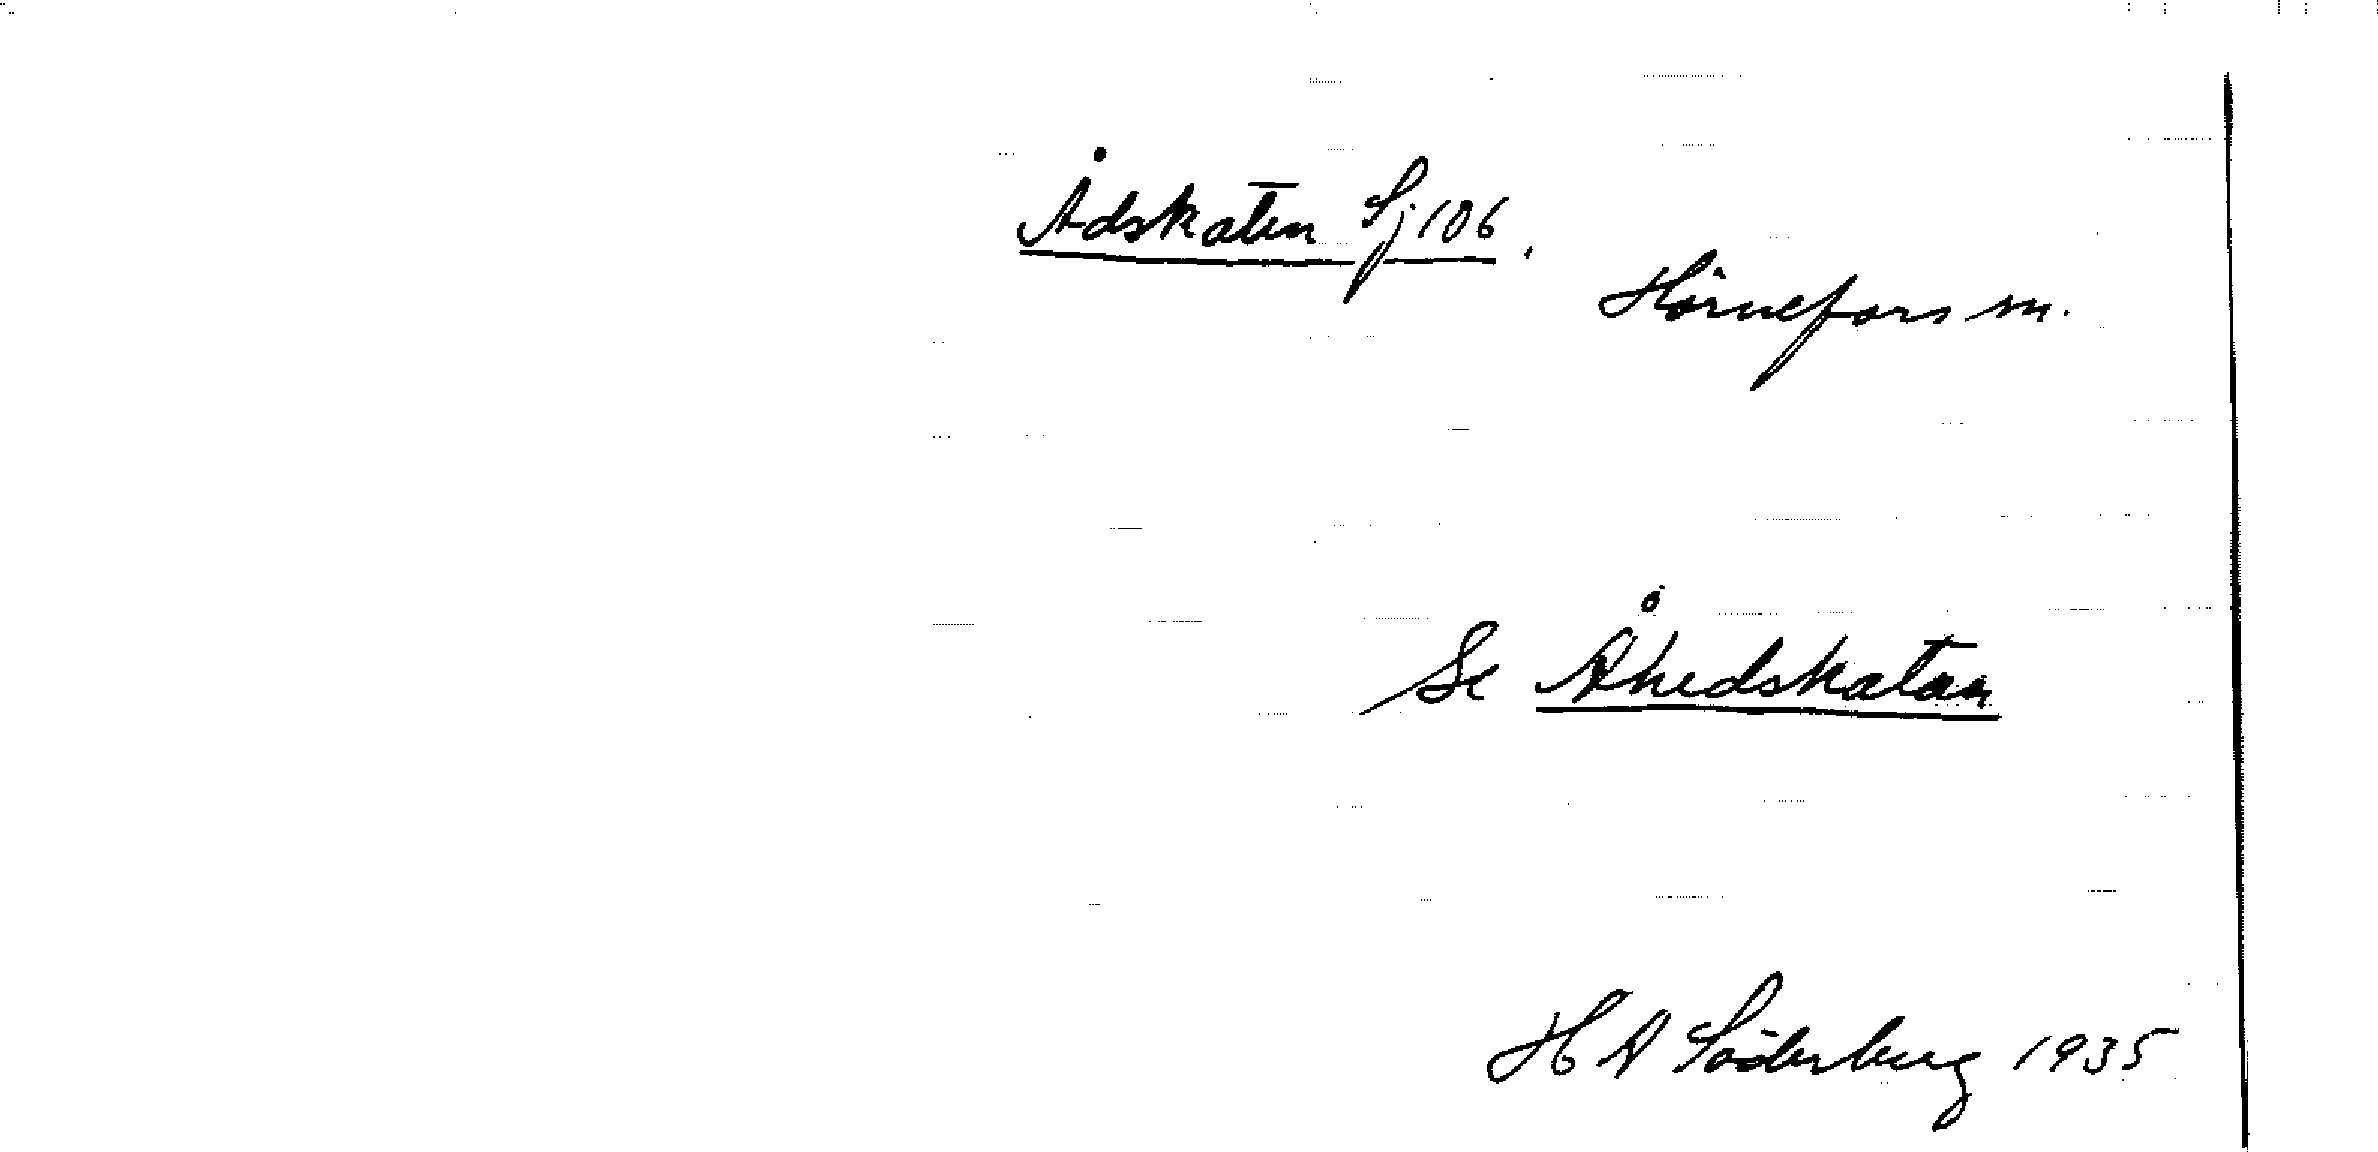 Ådskaten Sj 106.
Hörnefors sn.
Se Åhedskatan
H A Söderberg 1935